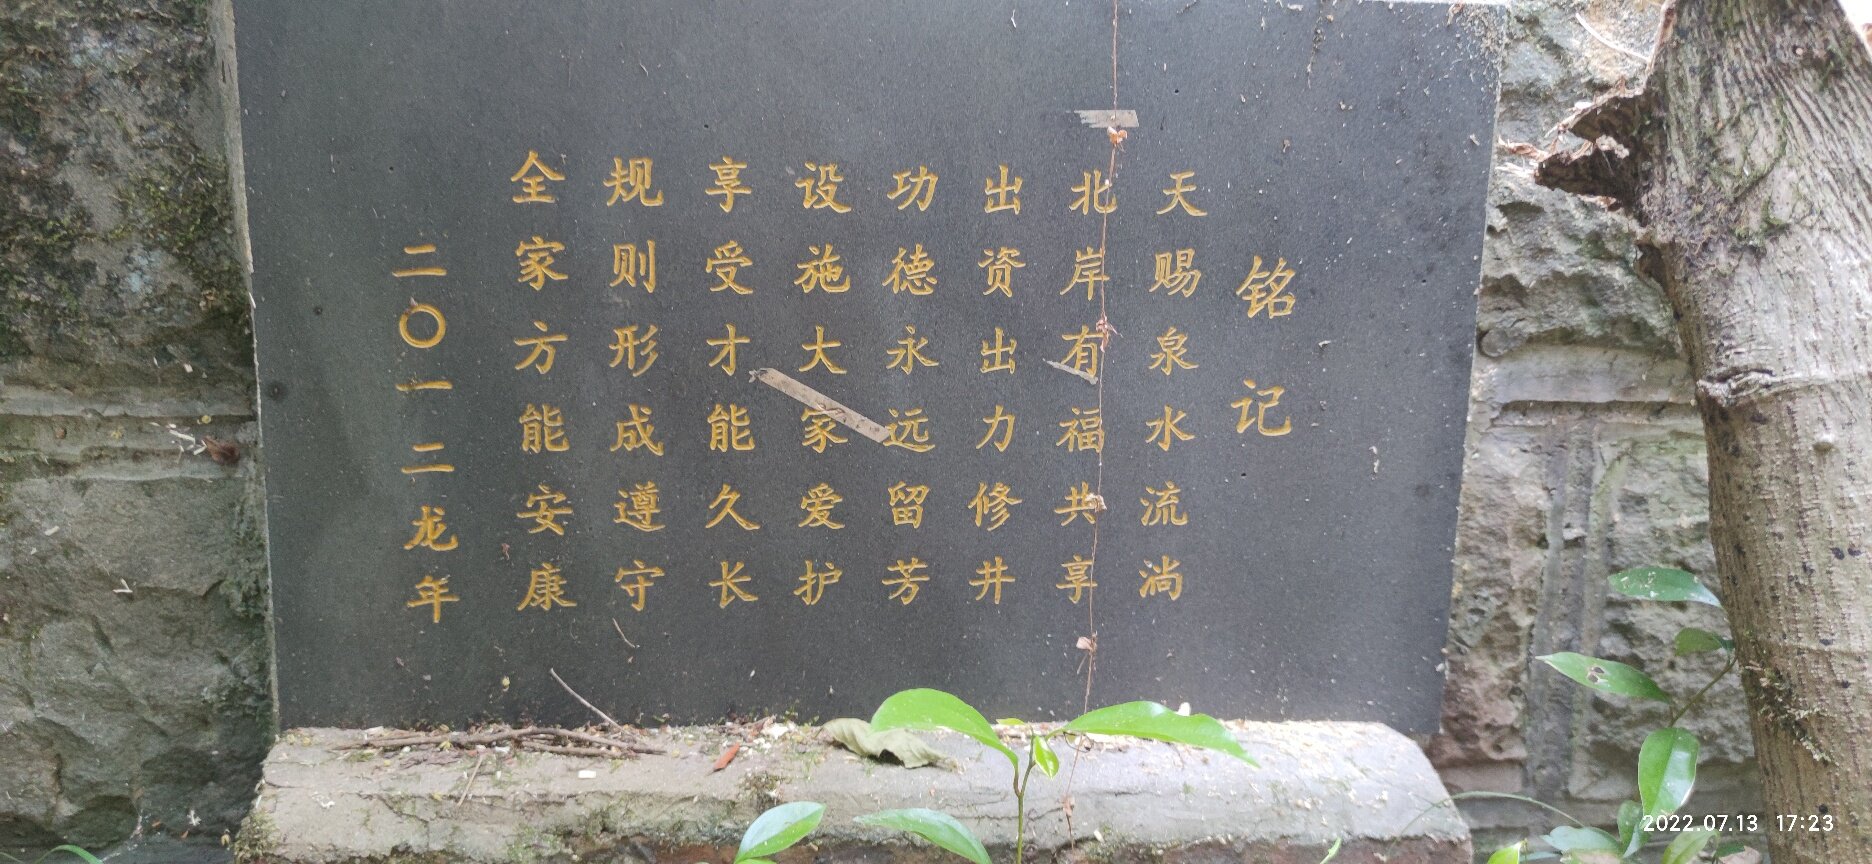 铭记
天赐泉水流淌
北岸有福共享
出资出力修井
功德永远留芳
设施大家爱护
享受才能久长
规则形成遵守
全家方能安康
二〇一二龙年
2022.07.13 17:23